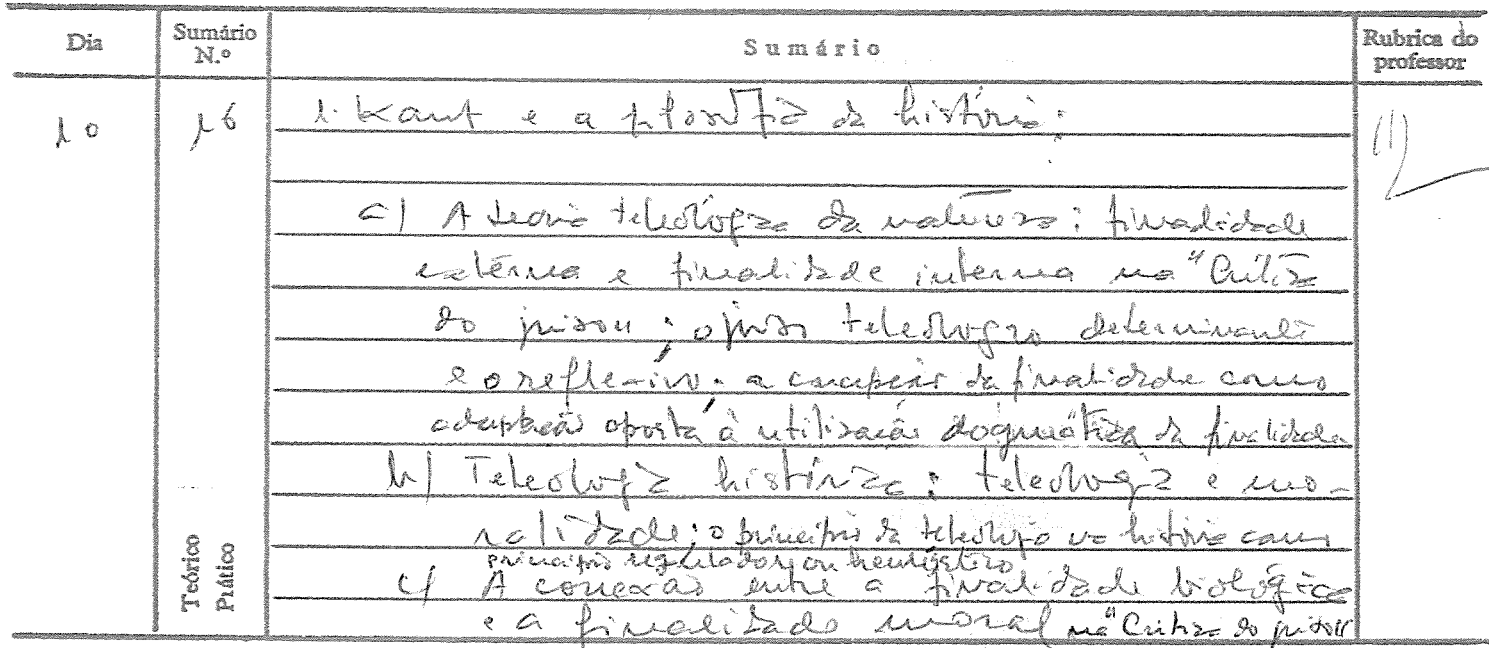 Dia
Sumário N.º
Sumário
Rubrica do professor
10
16
1. Kant e a filosofia da história:
a) A teoria teleológica da natureza: finalidade
externa e finalidade interna na "Crítica
do juizo"; o juizo teleológico determinante
e o reflexivo; a concepção da finalidade como
adaptação oposta à utilização dogmática da finalidade
b) Teleologia histórica: teleologia e mo-
ralidade; o princípio da teleologia na história como
princípio regulador ou heurístico
c) A conexão entre a finalidade biológica
e a finalidade moral na "Crítica do juizo"
Teórico
Prático